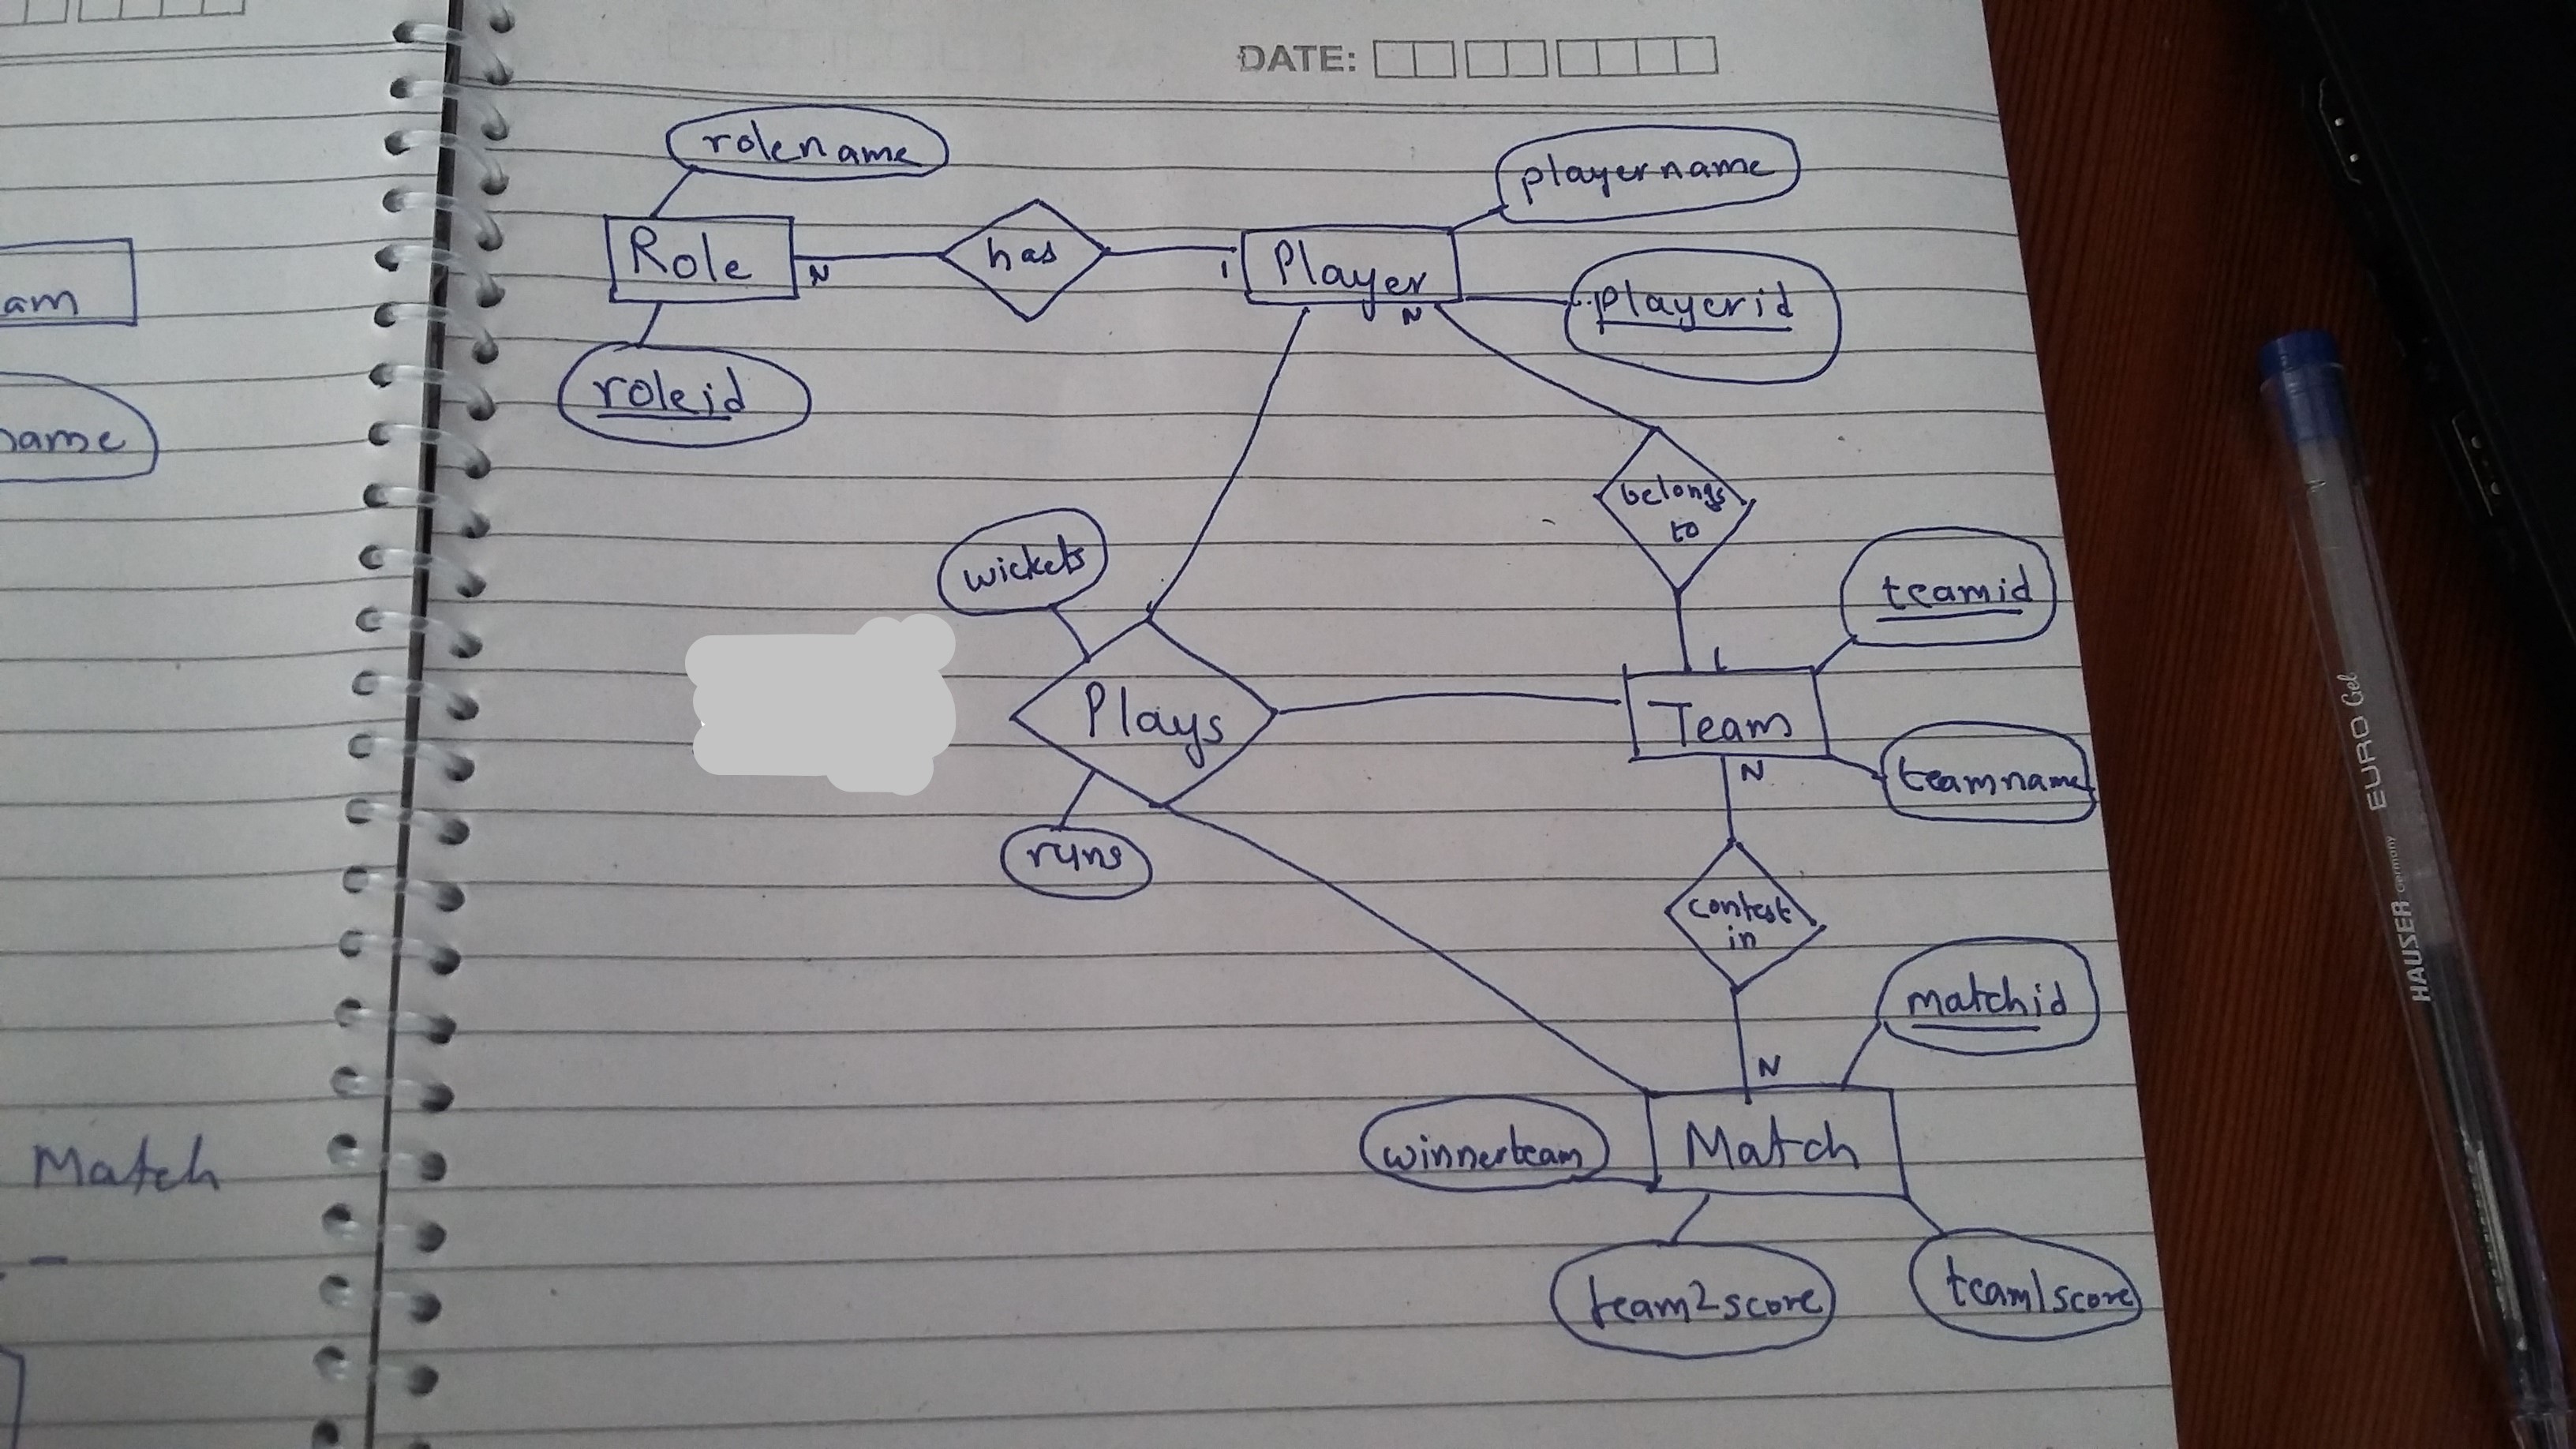 DATE:
rolename
playername
Role
N
has
1
Player
N
playerid
roleid
am
name
belongs
to
wickets
teamid
1
Plays
Team
N
teamname
runs
contest
in
matchid
N
winnerteam
Match
Match
team2score
team1score
HAUSER Germany EURO Gel